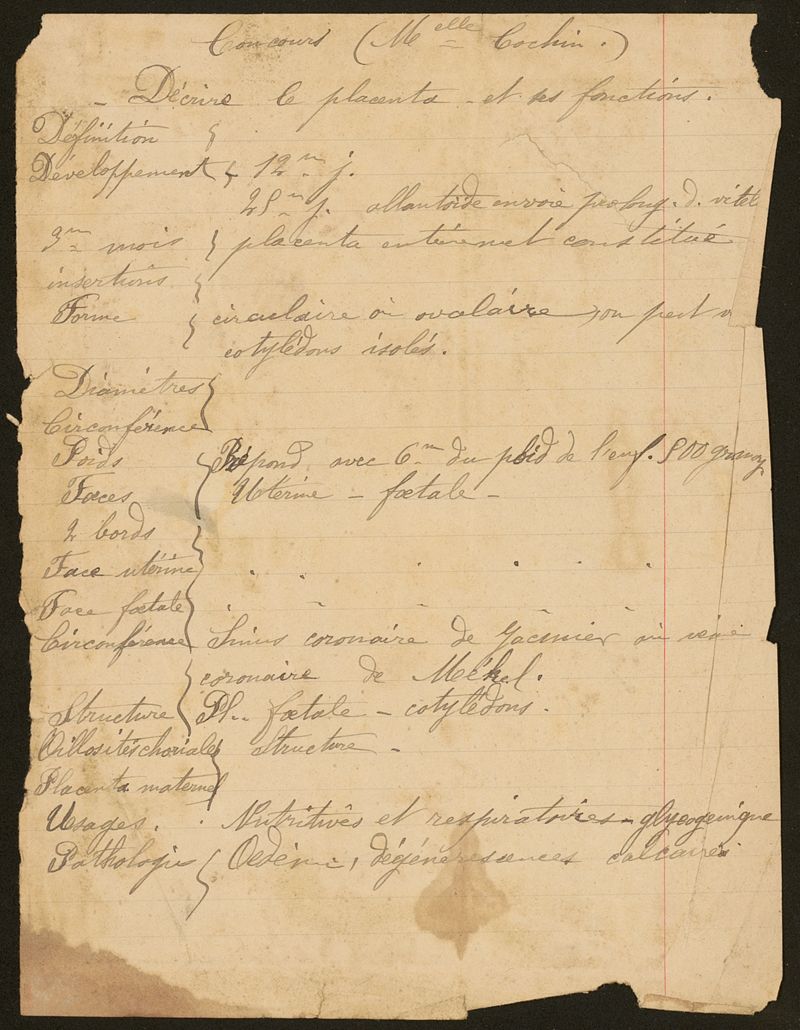 Concours (Melle Cochin.)
- Décrire le placenta et ses fonctions.
Définition {
Développement { 12m j.
25m j. allantoïde envoie prolong. d. vitel
3m mois } placenta entièremet constitué
insertions {
Forme { circulaire ou ovalaire, on peut v
cotylédons isolés.
Diamètres {
Circonférence
Poids { Répond avec 6m du poid de l'euf. 500 gramm
Faces Utérine - fœtale -
2 bords
Face utérine
Face fœtale
Circonférence Sinus coronaire de Jacmier ou veine
coronaire de Mékel.
Structure Pl.. fœtale - cotylédons.
Villosités choriales Structure -
Placenta maternel
Usages. Nutritives et respiratoires - glycogenique
Pathologie { Oedème, dégénérescences calcaires